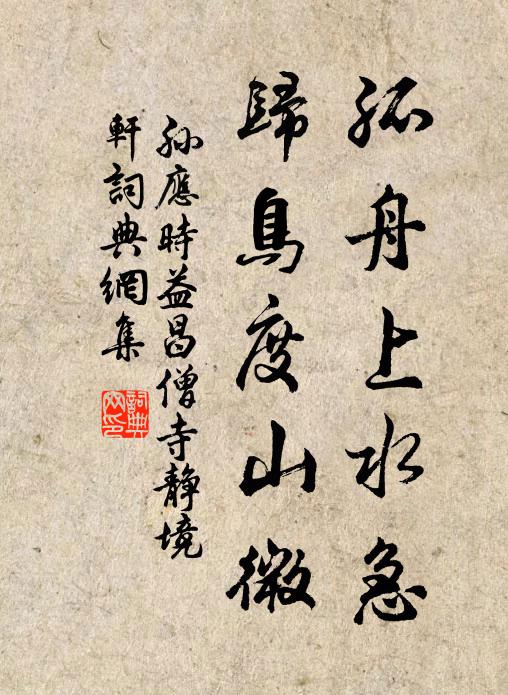 孤舟上水急
歸鳥度山微
孫應時益昌僧寺静境
軒詞典網集
詞典網印